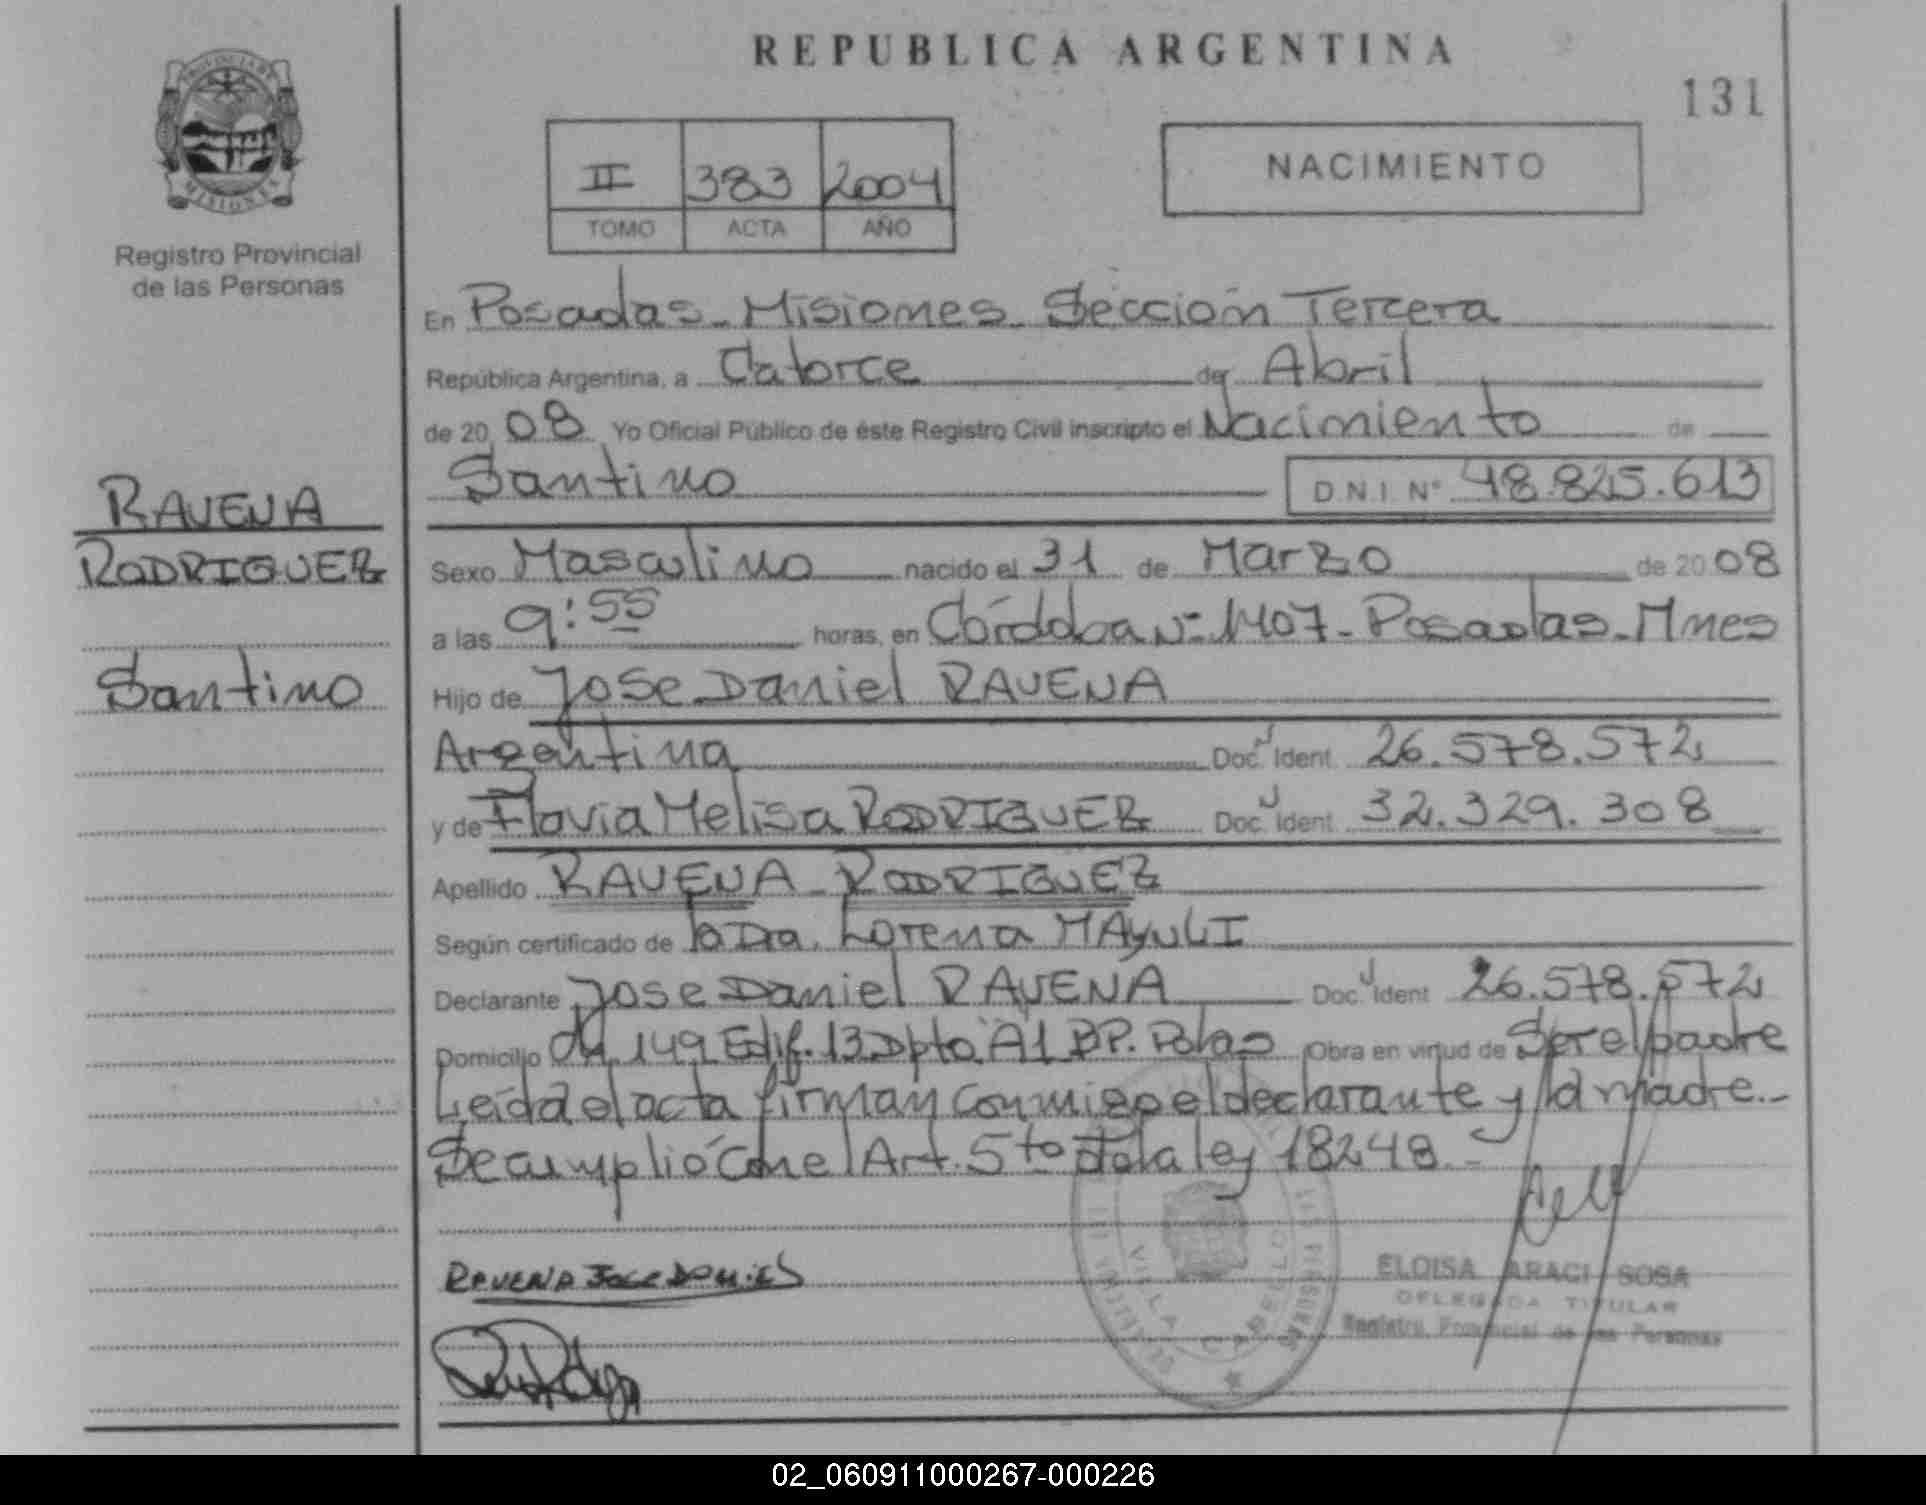 REPUBLICA ARGENTINA
131
II 383 2004
TOMO ACTA AÑO
NACIMIENTO
PROVINCIA DE
MISIONES
Registro Provincial
de las Personas
En Posadas - Misiones - Sección Tercera
República Argentina, a Catorce de Abril
de 20 08 Yo Oficial Público de éste Registro Civil inscripto el Nacimiento de
Santino D N I Nº 48.825.613
RAVENA
RODRIGUEZ
Santino
Sexo Masculino nacido el 31 de Marzo de 20 08
a las 9:55 horas, en Córdoba Nº 1407 - Posadas - Mnes
Hijo de Jose Daniel RAVENA
Argentina Doc. Ident. 26.578.572
y de Flavia Melisa RODRIGUEZ Doc. Ident. 32.329.308
Apellido RAVENA RODRIGUEZ
Según certificado de la Dra. Lorena MAYULI
Declarante Jose Daniel RAVENA Doc. Ident 26.578.572
Domicilio 149 Edif. 13 Dpto. A1 BP. Pdas Obra en virtud de Ser el padre
Leída el acta firman conmigo el declarante y la madre.-
Se cumplió con el Art. 5to de la ley 18248.-
RAVENA JOSE DANIEL
VILLA CABELLO
ELOISA ARACI SOSA
DELEGADA TITULAR
Registro Provincial de las Personas
02_060911000267-000226